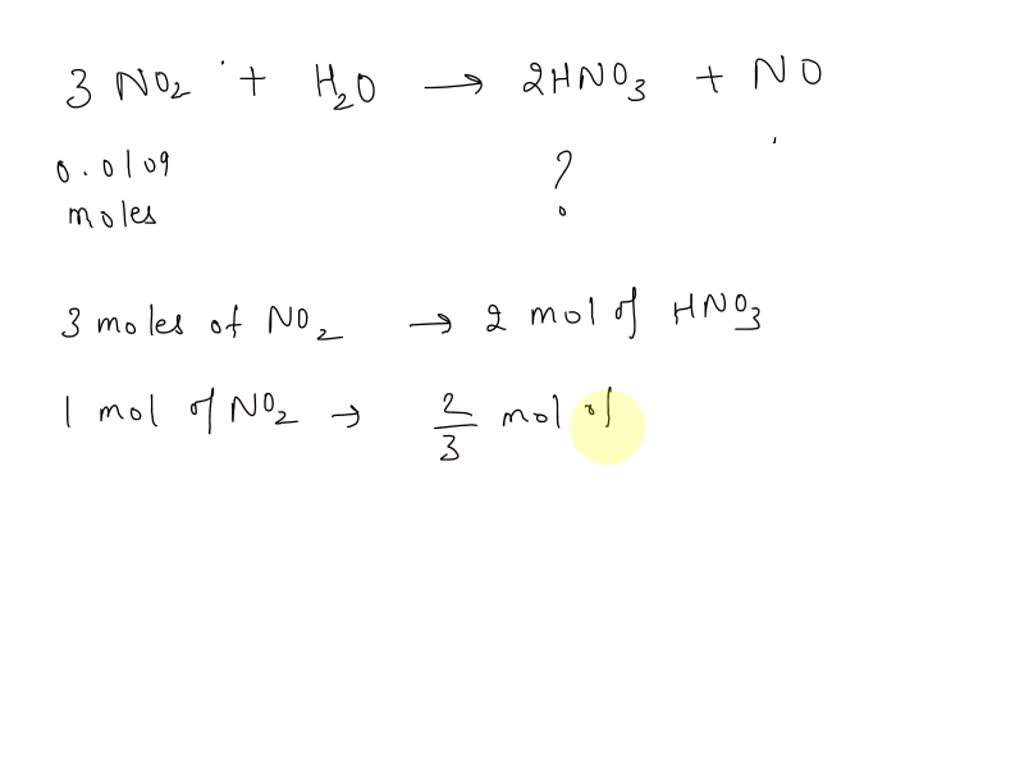 3 NO₂ + H₂O → 2HNO₃ + NO
0.0109 ?
moles
3 moles of NO₂ → 2 mol of HNO₃
1 mol of NO₂ → 2/3 mol of